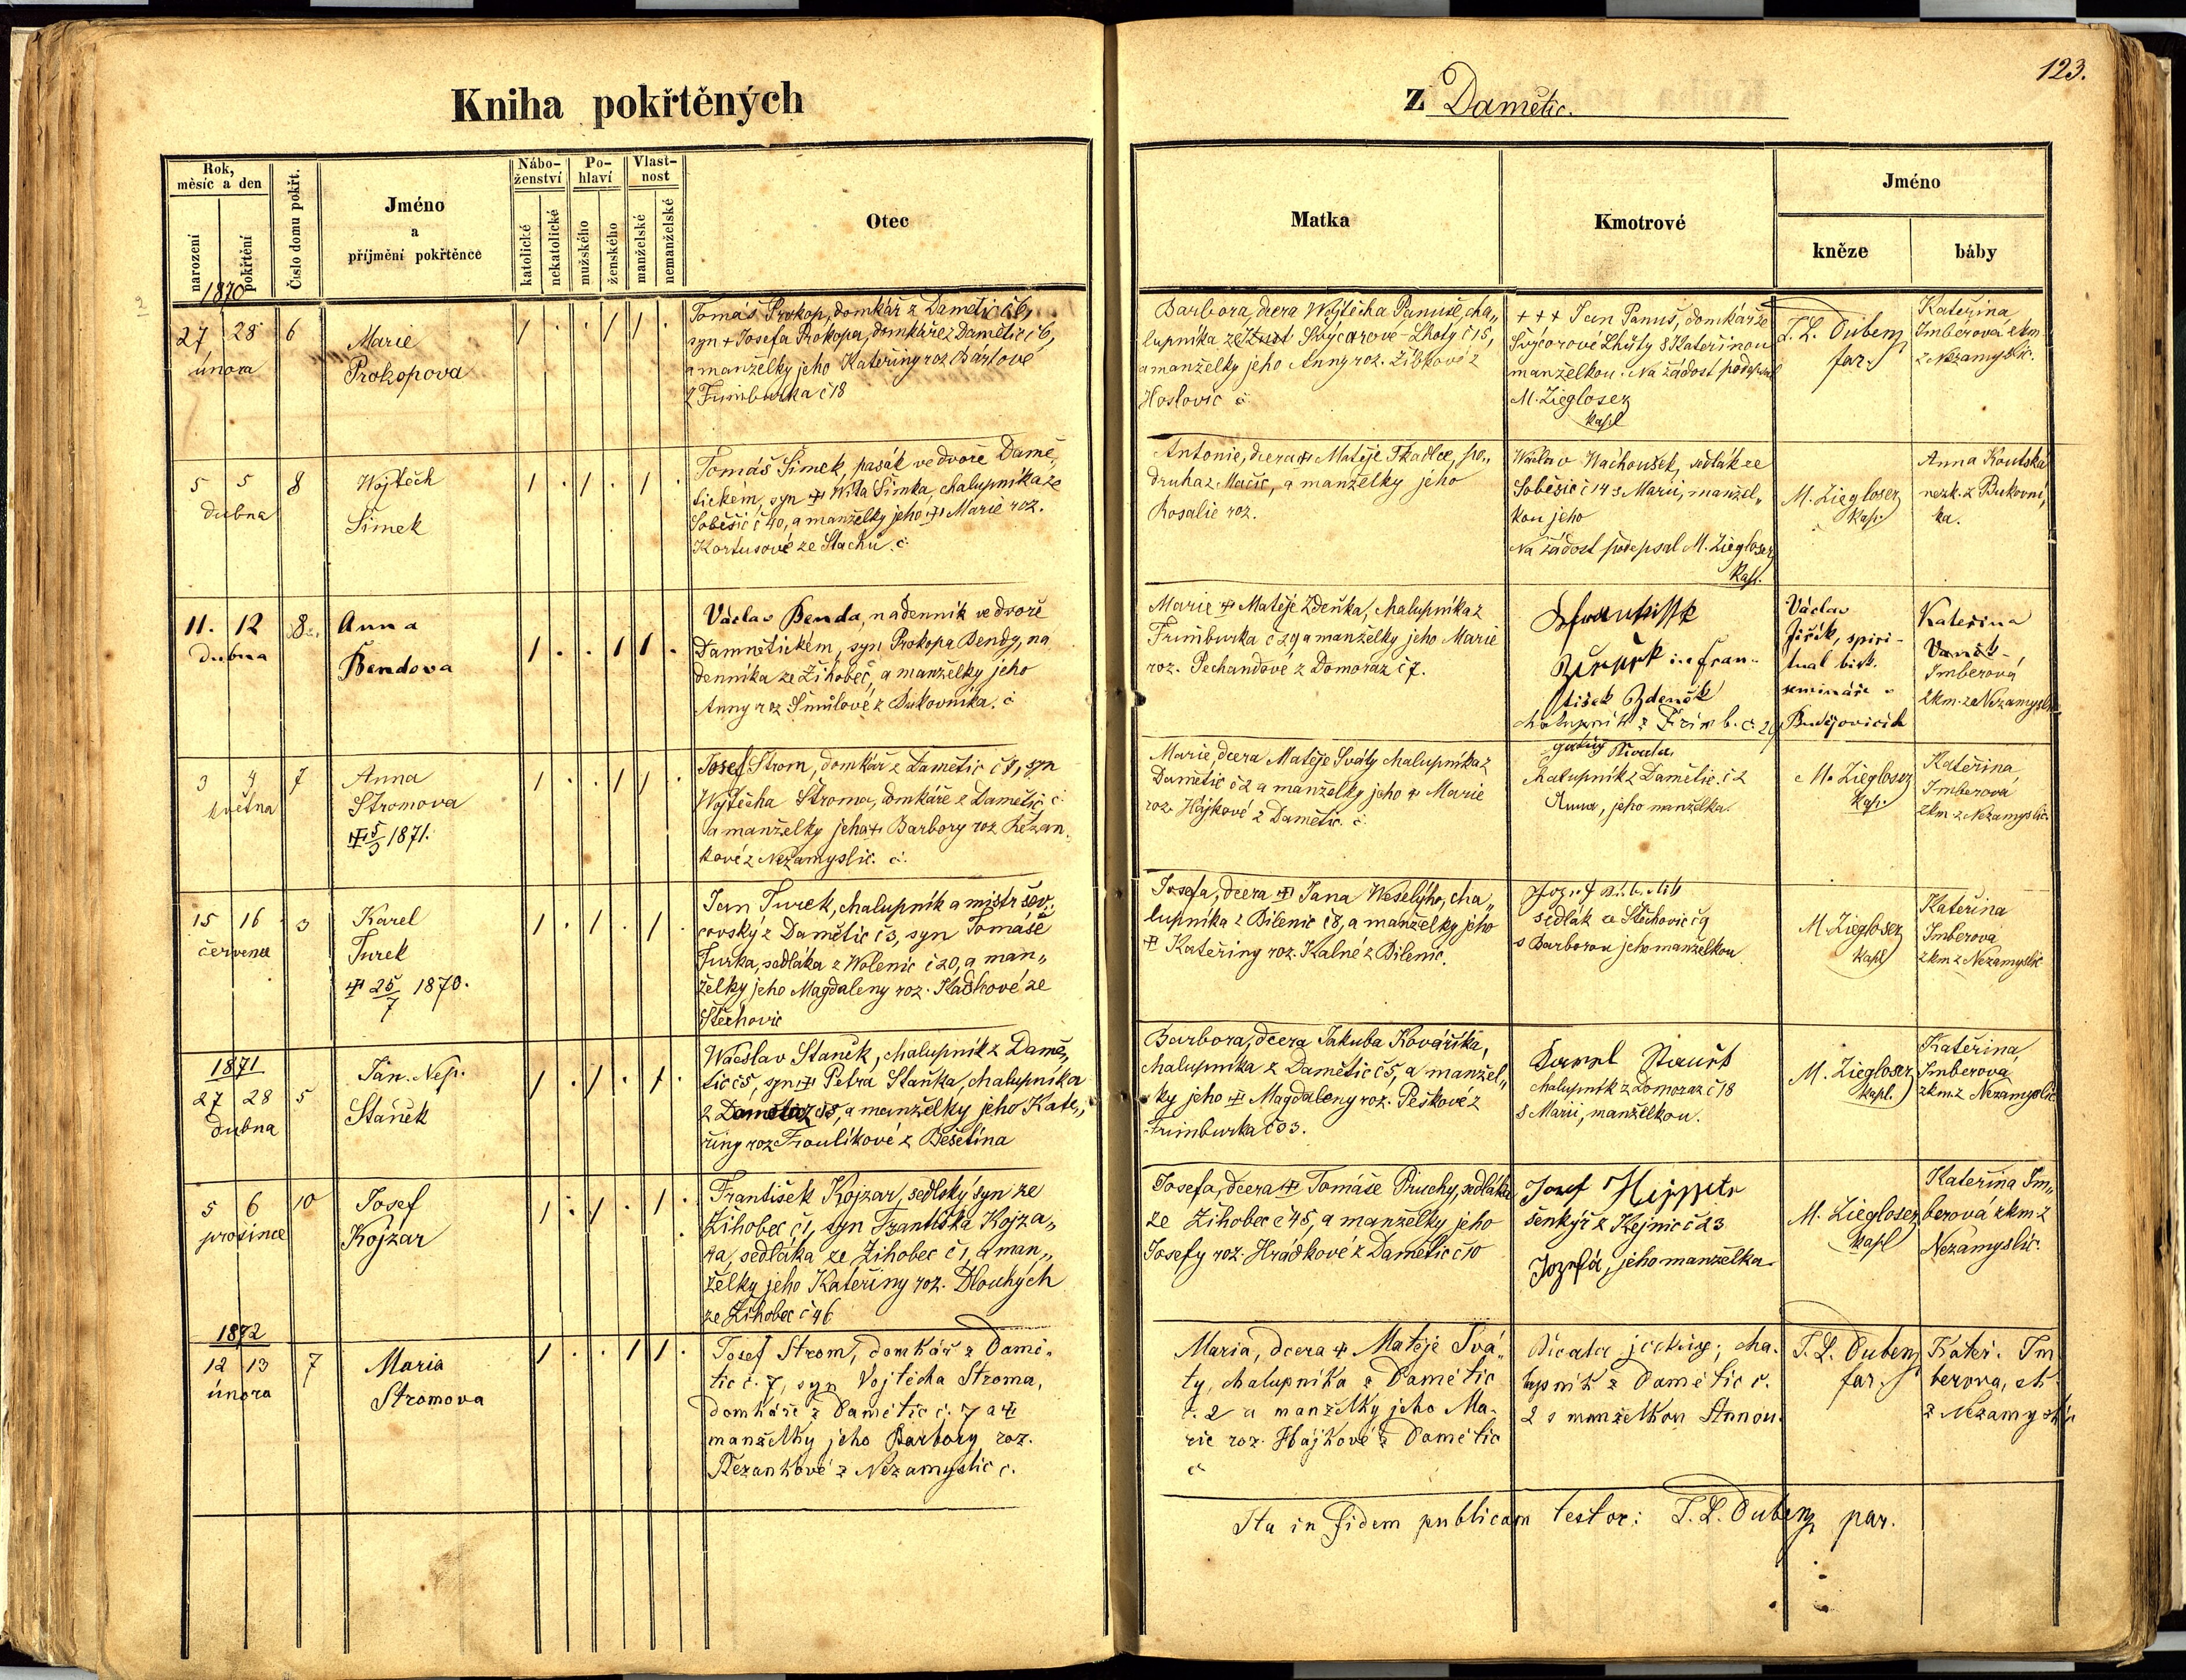 123.
Kniha pokřtěných
z Damětic.
Rok, měsíc a den
narození
pokřtění
Číslo domu pokřt.
Jméno
a
příjmění pokřtěnce
Nábo-
ženství
katolické
nekatolické
Po-
hlaví
mužského
ženského
Vlast-
nost
manželské
nemanželské
Otec
Matka
Kmotrové
Jméno
kněze
báby
1870
27 28 6
února
Marie
Prokopova
Tomáš Prokop, domkář z Damětic č 6,
syn + Josefa Prokopa, domkáře z Damětic č 6,
a manželky jeho Kateřiny roz. Bártové
z Frimburka č 18
Barbora, dcera Wojtěcha Panuše, cha„
lupníka ze Švýcarové-Lhoty č 15,
a manželky jeho Anny roz. Zíbkové z
Hoslovic č
+++ Jan Panuš, domkář ze
Švýcarové Lhůty s Kateřinou
manželkou. Na žádost podepsal
M. Ziegloser
kapl
T. L. Dubenz
far.
Kateřina
Imberová zkm
z Nezamyslic.
5 5 8
dubna
Wojtěch
Šimek
Tomáš Šimek, pasák ve dvoře Damě„
tickém, syn + Wíta Šimka, chalupníka ze
Soběšic č 40, a manželky jeho + Marie roz.
Kortusové ze Stachů. č
Antonie, dcera + Matěje Tkadlce, po„
druha z Mačic, a manželky jeho
Rosalie roz.
Wáclav Wachoušek, sedlák ze
Soběšic č 14 s Marií, manžel„
kou jeho
Na žádost podepsal M. Ziegloser
kapl.
M. Ziegloser
kap.
Anna Koutská
nezk. z Bukovní„
ka.
11. 12 8
dubna
Anna
Bendova
Václav Benda, nádenník ve dvoře
Damnětickém, syn Prokopa Bendy, ná
denníka ze Žihobec, a manželky jeho
Anny roz Šmůlové z Bukovníka. č
Marie + Matěje Zdeňka, chalupníka z
Frimburka č 29 a manželky jeho Marie
roz. Pechandové z Domoraz č 7.
Fran-
tišek Zdeněk
chalupník z Frimb. č. 29
Václav
Jiřík, spiri-
tual bisk.
semináře v
Budějovicích
Kateřina
Vaněk-
Imberová
zkm. ze Nezamyslic
3 4 7
května
Anna
Stromova
+ 5/3 1871.
Josef Strom, domkář z Damětic č 7, syn
Wojtěcha Stroma, domkáře z Damětic č.
a manželky jeho + Barbory roz Řežan„
kové z Nezamyslic. č.
Marie, dcera Matěje Sváty chalupníka z
Damětic č 2 a manželky jeho + Marie
roz. Hájkové z Damětic. č.
chalupník z Damětic. č 2
Anna, jeho manželka.
M. Ziegloser
kap.
Kateřina
Imberová
zkm z Nezamyslic.
15 16 3
července
Karel
Turek
+ 25/7 1870.
Jan Turek, chalupník a mistr šev„
covský z Damětic č 3, syn Tomáše
Turka, sedláka z Wolenic č 20, a man„
želky jeho Magdaleny roz. Kadkové ze
Stěchovic
Josefa, dcera + Jana Weselýho, cha„
lupníka z Bílenic č 8, a manželky jeho
+ Kateřiny roz. Kalné z Bílenic.
sedlák ze Stěchovic č 9
s Barborou jeho manželkou
M. Ziegloser
kapl
Kateřina
Imberova
zkm z Nezamyslic
1871
27 28 5
dubna
Jan. Nep.
Staněk
Wácslav Staněk, chalupník z Damě„
tic č 5, syn + Petra Staňka, chalupníka
z Damětic č 5, a manželky jeho Kate„
řiny roz Froulíkové z Bešetína
Barbora, dcera Jakuba Kováříka,
chalupníka z Damětic č 5, a manžel„
ky jeho + Magdaleny roz. Peškové z
Frimburka č 33.
chalupník z Domoraz č 18
s Marií, manželkou.
M. Ziegloser
kapl.
Kateřina,
Imberova
zkm. z Nezamyslic
5 6 10
prosince
Josef
Kojzar
František Kojzar, sedlský syn ze
Žihobec č 1, syn Františka Kojza„
ra, sedláka ze Žihobec č 1, a man„
želky jeho Kateřiny roz. Dlouhých
ze Žihobec č 46
Josefa, dcera + Tomáše Průchy, sedláka
ze Žihobec č 45, a manželky jeho
Josefy roz. Hrádkové z Damětic č 10
šenkýř z Kejnic č 23
Jozefa, jeho manželka.
M. Ziegloser
kapl
Kateřina Im„
berová zkm z
Nezamyslic.
1872
12 13 7
února
Maria
Stromova
Josef Strom, domkář z Damě-
tic č. 7, syn Vojtěcha Stroma,
domkáře z Damětic č. 7 a +
manželky jeho Barbory roz.
Řezankové z Nezamyslic č.
Maria, dcera + Matěje Svá-
ty, chalupníka z Damětic
č. 2 a manželky jeho Ma-
rie roz. Hájkové z Damětic
č
cha-
lupník z Damětic č.
2 s manželkou Annou.
T. L. Dubenz
far.
Kateř. Im
berova, zk
z Nezamyslic
Ita in fidem publicam testor: T. L. Dubenz par.